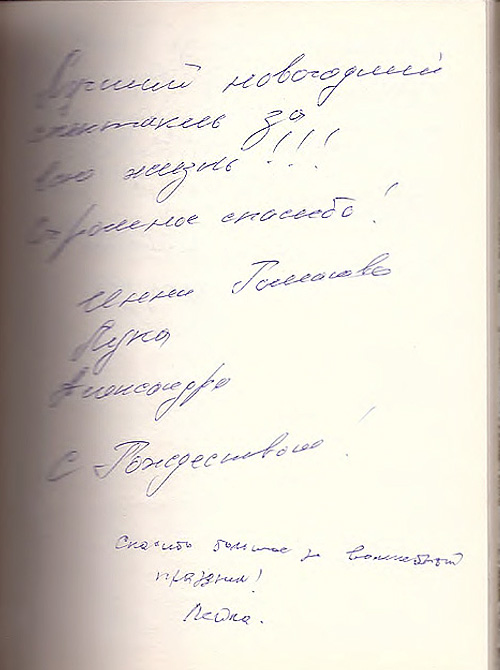 Лучший новогодний
спектакль за
всю жизнь!!!
Огромное спасибо!
Лука
Александра
С Рождеством!
Спасибо большое за волшебный
праздник!